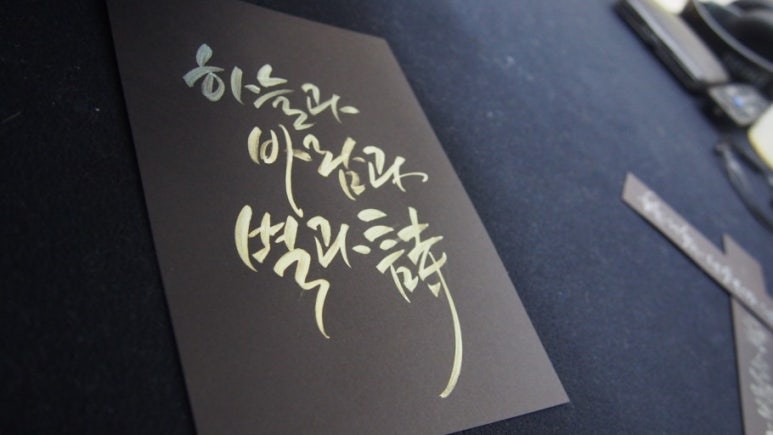 하늘과
바람과
별과 詩